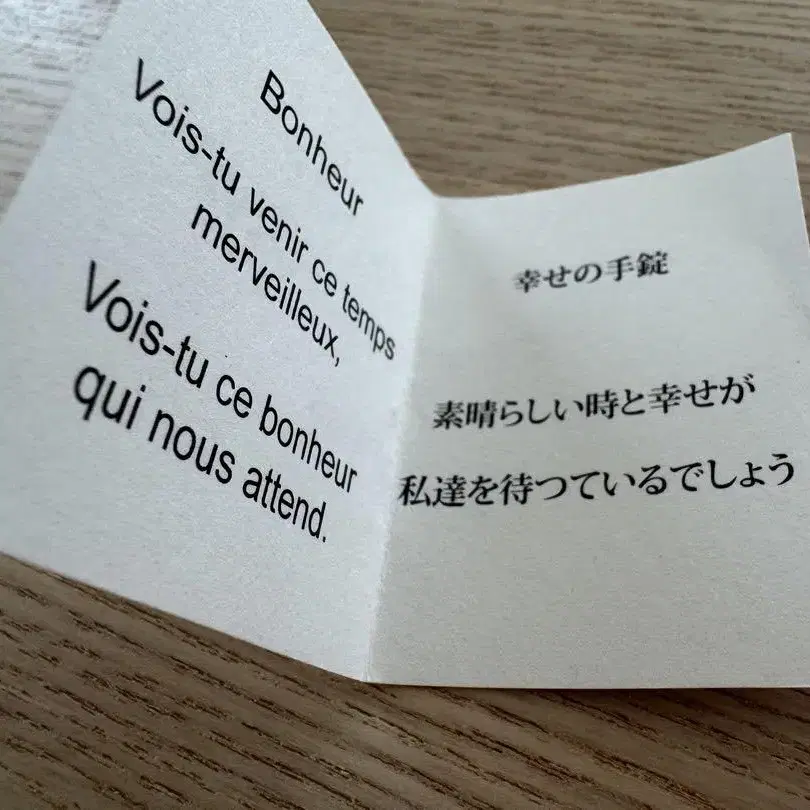 Bonheur
Vois-tu venir ce temps
merveilleux,
Vois-tu ce bonheur
qui nous attend.
幸せの手錠
素晴らしい時と幸せが
私達を待つているでしょう